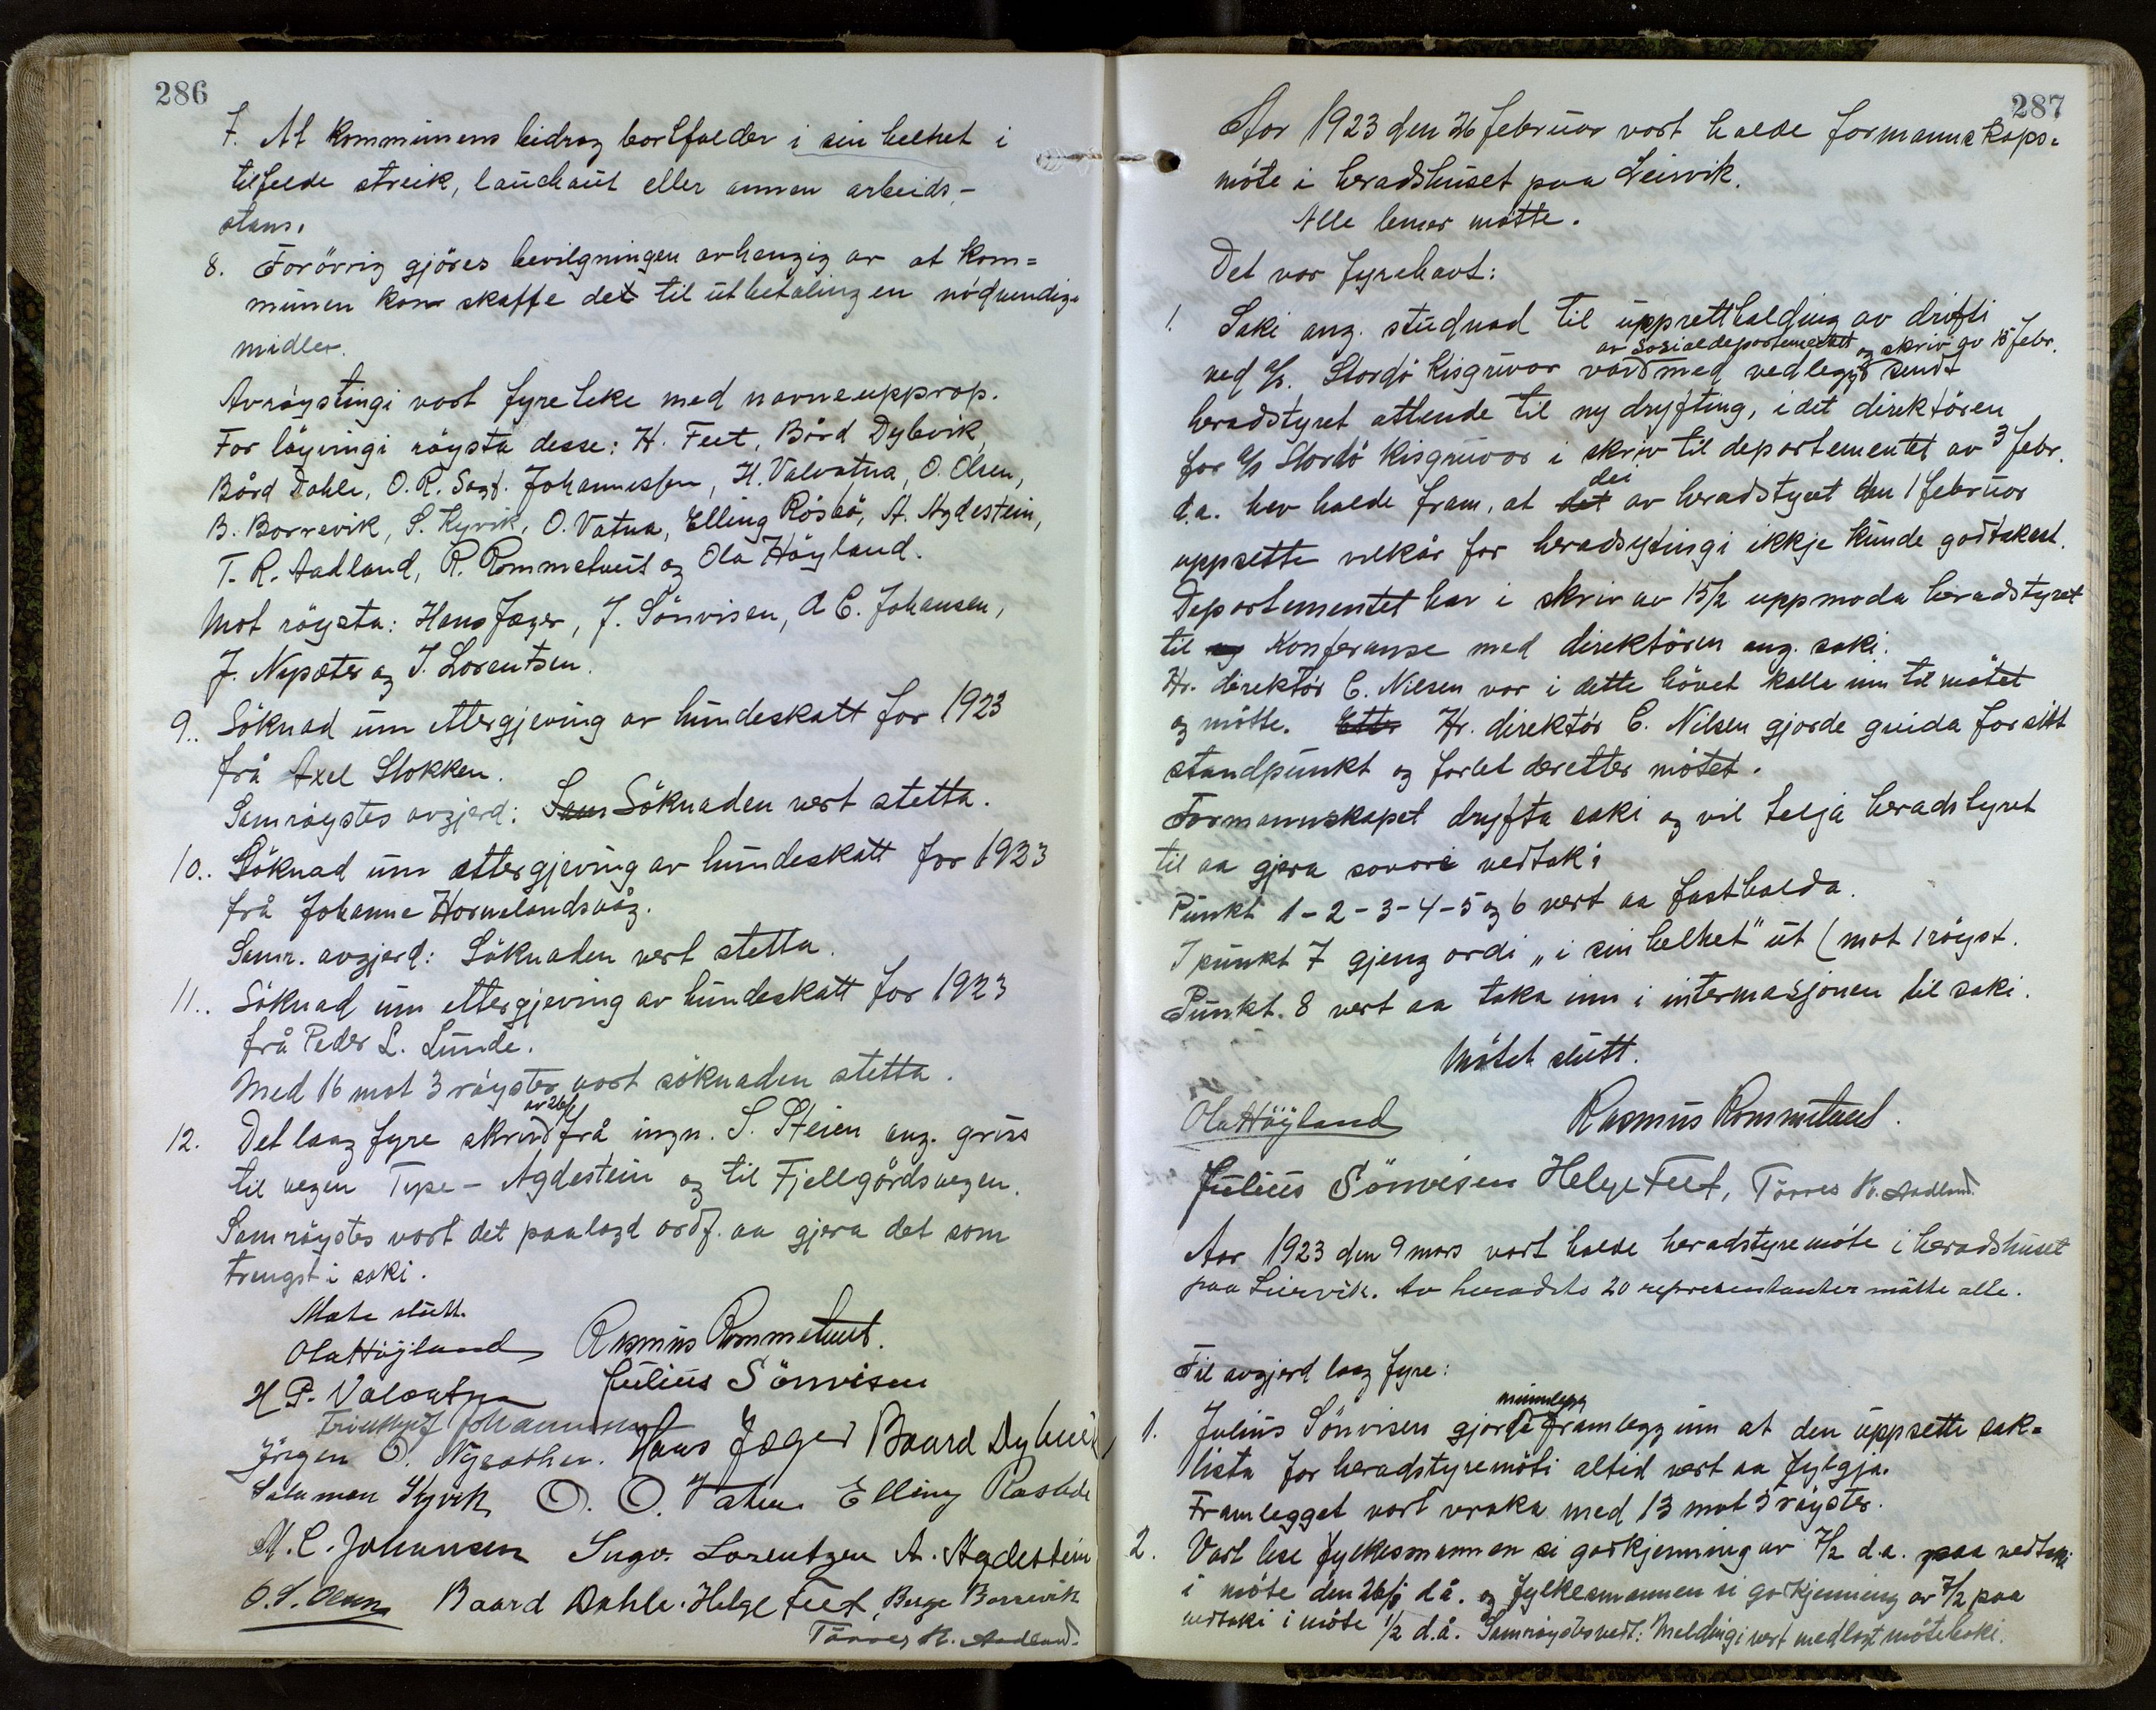 286
7. At kommunens bidrag bortfalder i sin helhet i
tilfelde streik, lauchaut eller annen arbeids-
stans.
8. Forövrig gjöres bevilgningen avhengig av at kom=
munen kan skaffe det til utbetalingen nödvendige
midler.
Avröystingi vart fyreteke med navneupprop.
For löyvingi röysta desse: H. Feet, Bård Dybvik,
Bård Dahle, O. R. Sagt. Johannessen, H. Valvatna, O. Olsen,
B. Borrevik, S. Kyvik, O. Vatna, Elling Rösbö, A. Agdestein,
T. R. Aadland, R. Rommetveit og Ola Höyland.
Mot röysta: Hans Jæger, J. Sönvisen, A C. Johansen,
J. Nysæter og I. Lorentsen.
9.. Söknad um ettergjeving av hundeskatt for 1923
frå Axel Stokken.
Samröystes avgjerd: Sam Söknaden vert stetta.
10.. Söknad um ettergjeving av hundeskatt for 1923
frå Johanne Hornelandsvåg.
Samr. avgjerd: Söknaden vert stetta.
11.. Söknad um ettergjeving av hundeskatt for 1923
frå Peder L. Lunde.
Med 16 mot 3 röyster vart söknaden stetta.
12. Det laag fyre skriv av 26/1 frå ingn. S. Steien ang. grus
til vegen Tyse - Agdestein og til Fjellgårdsvegen.
Samröystes vart det paalagd ordf. aa gjera det som
trengst i saki.
Möte slutt.
Ola Höyland Rasmus Rommetveit.
H P. Valvatna Julius Sönvisen
Johannessen
Jörgen O. Nysæther. Hans Jæger Baard Dybvik
Salamon Kyvik O. O. Vatna Elling Rosbö
M. C. Johansen Ingv. Lorentzen A. Agdestein
O. S. Olsen Baard Dahle. Helge Feet, Berge Borrevik
Tårres R. Aadland.
287
Aar 1923 den 26 februar vart halde formannskaps=
möte i heradshuset paa Leirvik.
Alle lemer mötte.
Det var fyrehavt:
1. Saki ang. studnad til upprettholding av drifti
ved A/S. Stordö Kisgruvor vard av Sosialdepartementet med vedlegg og skriv av 15 febr. sendt
heradstyret attende til ny dryfting, i det direktören
for A/S Stordö Kisgruvor i skriv til departementet av 3 febr.
d.a. hev halde fram, at det dei av heradstyret den 1 februar
uppsette vilkår for heradsytingi ikkje kunde godtakast.
Departementet har i skriv av 15/2 uppmoda heradstyret
til og Konferanse med direktören ang. saki.
Hr. direktör C. Nilsen var i dette hövet kalla inn til mötet
og mötte. Ette Hr. direktör C. Nilsen gjorde greida for sitt
standpunkt og forlet deretter mötet.
Formannskapet dryfta saki og vil telja heradstyret
til aa gjera sovori vedtak:
Punkt 1-2-3-4-5 og 6 vert aa fasthalda.
I punkt 7 gjeng ordi „i sin helhet" ut (mot 1 röyst.
Punkt. 8 vert aa taka inn i intermasjonen til saki.
Mötet slutt.
Ola Höyland Rasmus Rommetveit.
Julius Sönvisen Helge Feet, Tårres R. Aadland.
Aar 1923 den 9 mars vart halde heradstyremöte i heradshuset
paa Leirvik. Av heradets 20 representanter mötte alle.
Til avgjerd laag fyre:
1. Julius Sönvisen gjorde framlegg um at den uppsette sak=
lista for heradstyremöti altid vert aa fylgja.
Framlegget vart vraka med 13 mot 3 röyster.
2. Vart lese fylkesmannen si godkjenning av 7/2 d.a. paa vedtaki
i möte den 26/1 d å. og fylkesmannen si godkjenning av 7/2 paa
vedtaki i möte 1/2 d.å. Samröystes vedt: Meldingi vert medlagt möteboki.